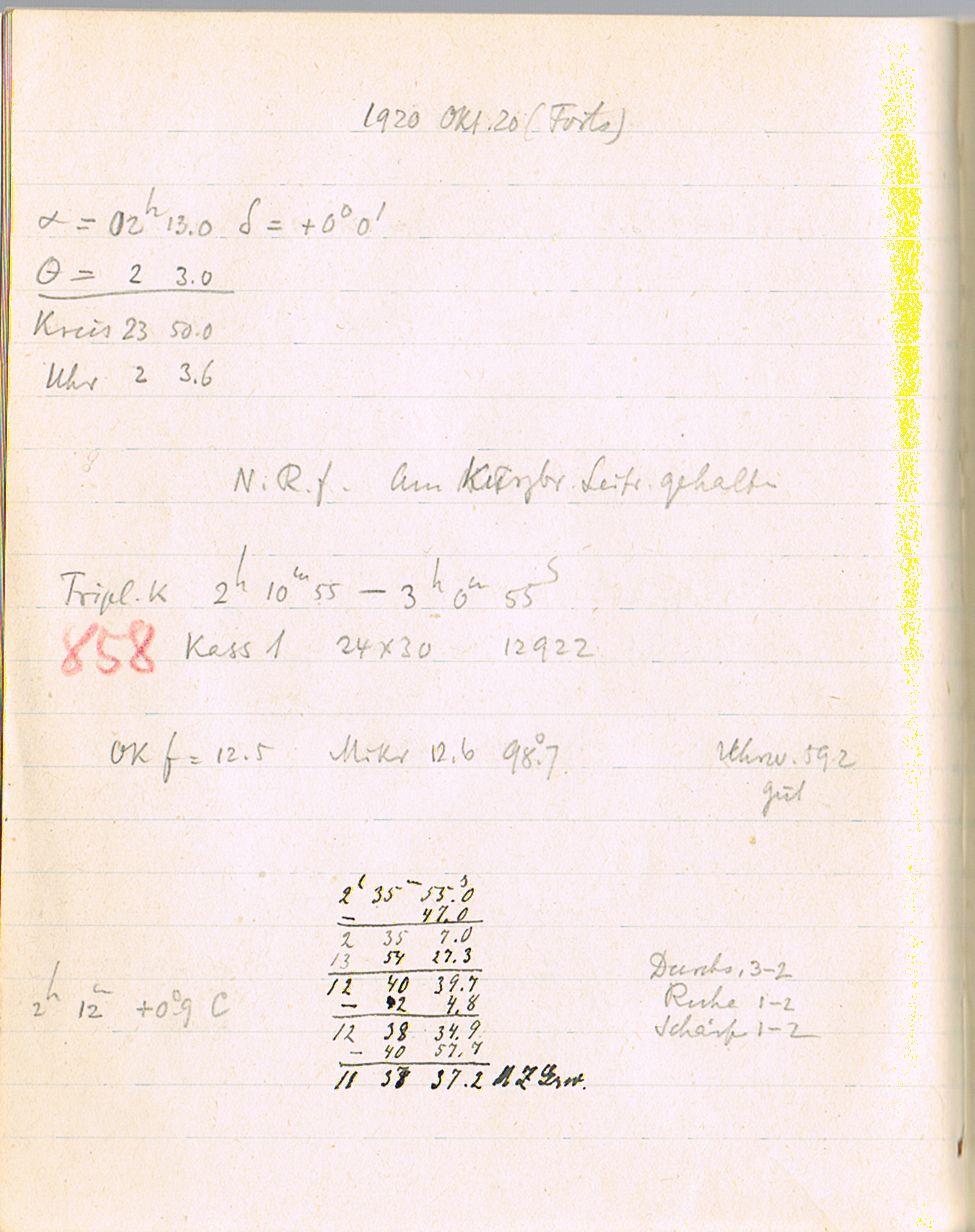 1920 Okt. 20 (Forts)
α = 02ʰ 13.0 δ = +0° 0'
Θ = 2 3.0
Kreis 23 50.0
Uhr 2 3.6
N. R. f. Am Leitr. gehalten
Tripl. K 2ʰ 10ᵐ 55 — 3ʰ 0ᵐ 55ˢ
858 Kass 1 24x30 12922
OK f = 12.5 Mikr 12.6 98°.7 Uhrw. 59.2
gut
2ʰ 35ᵐ 55ˢ.0
— 47.0
2 35 7.0
13 54 27.3
12 40 39.7
— 2 4.8
12 38 34.9
— 40 57.7
11 37.2 M Z Grw.
2ʰ 12ᵐ +0°.9 C
Durchs. 3-2
Ruhe 1-2
Schärfe 1-2